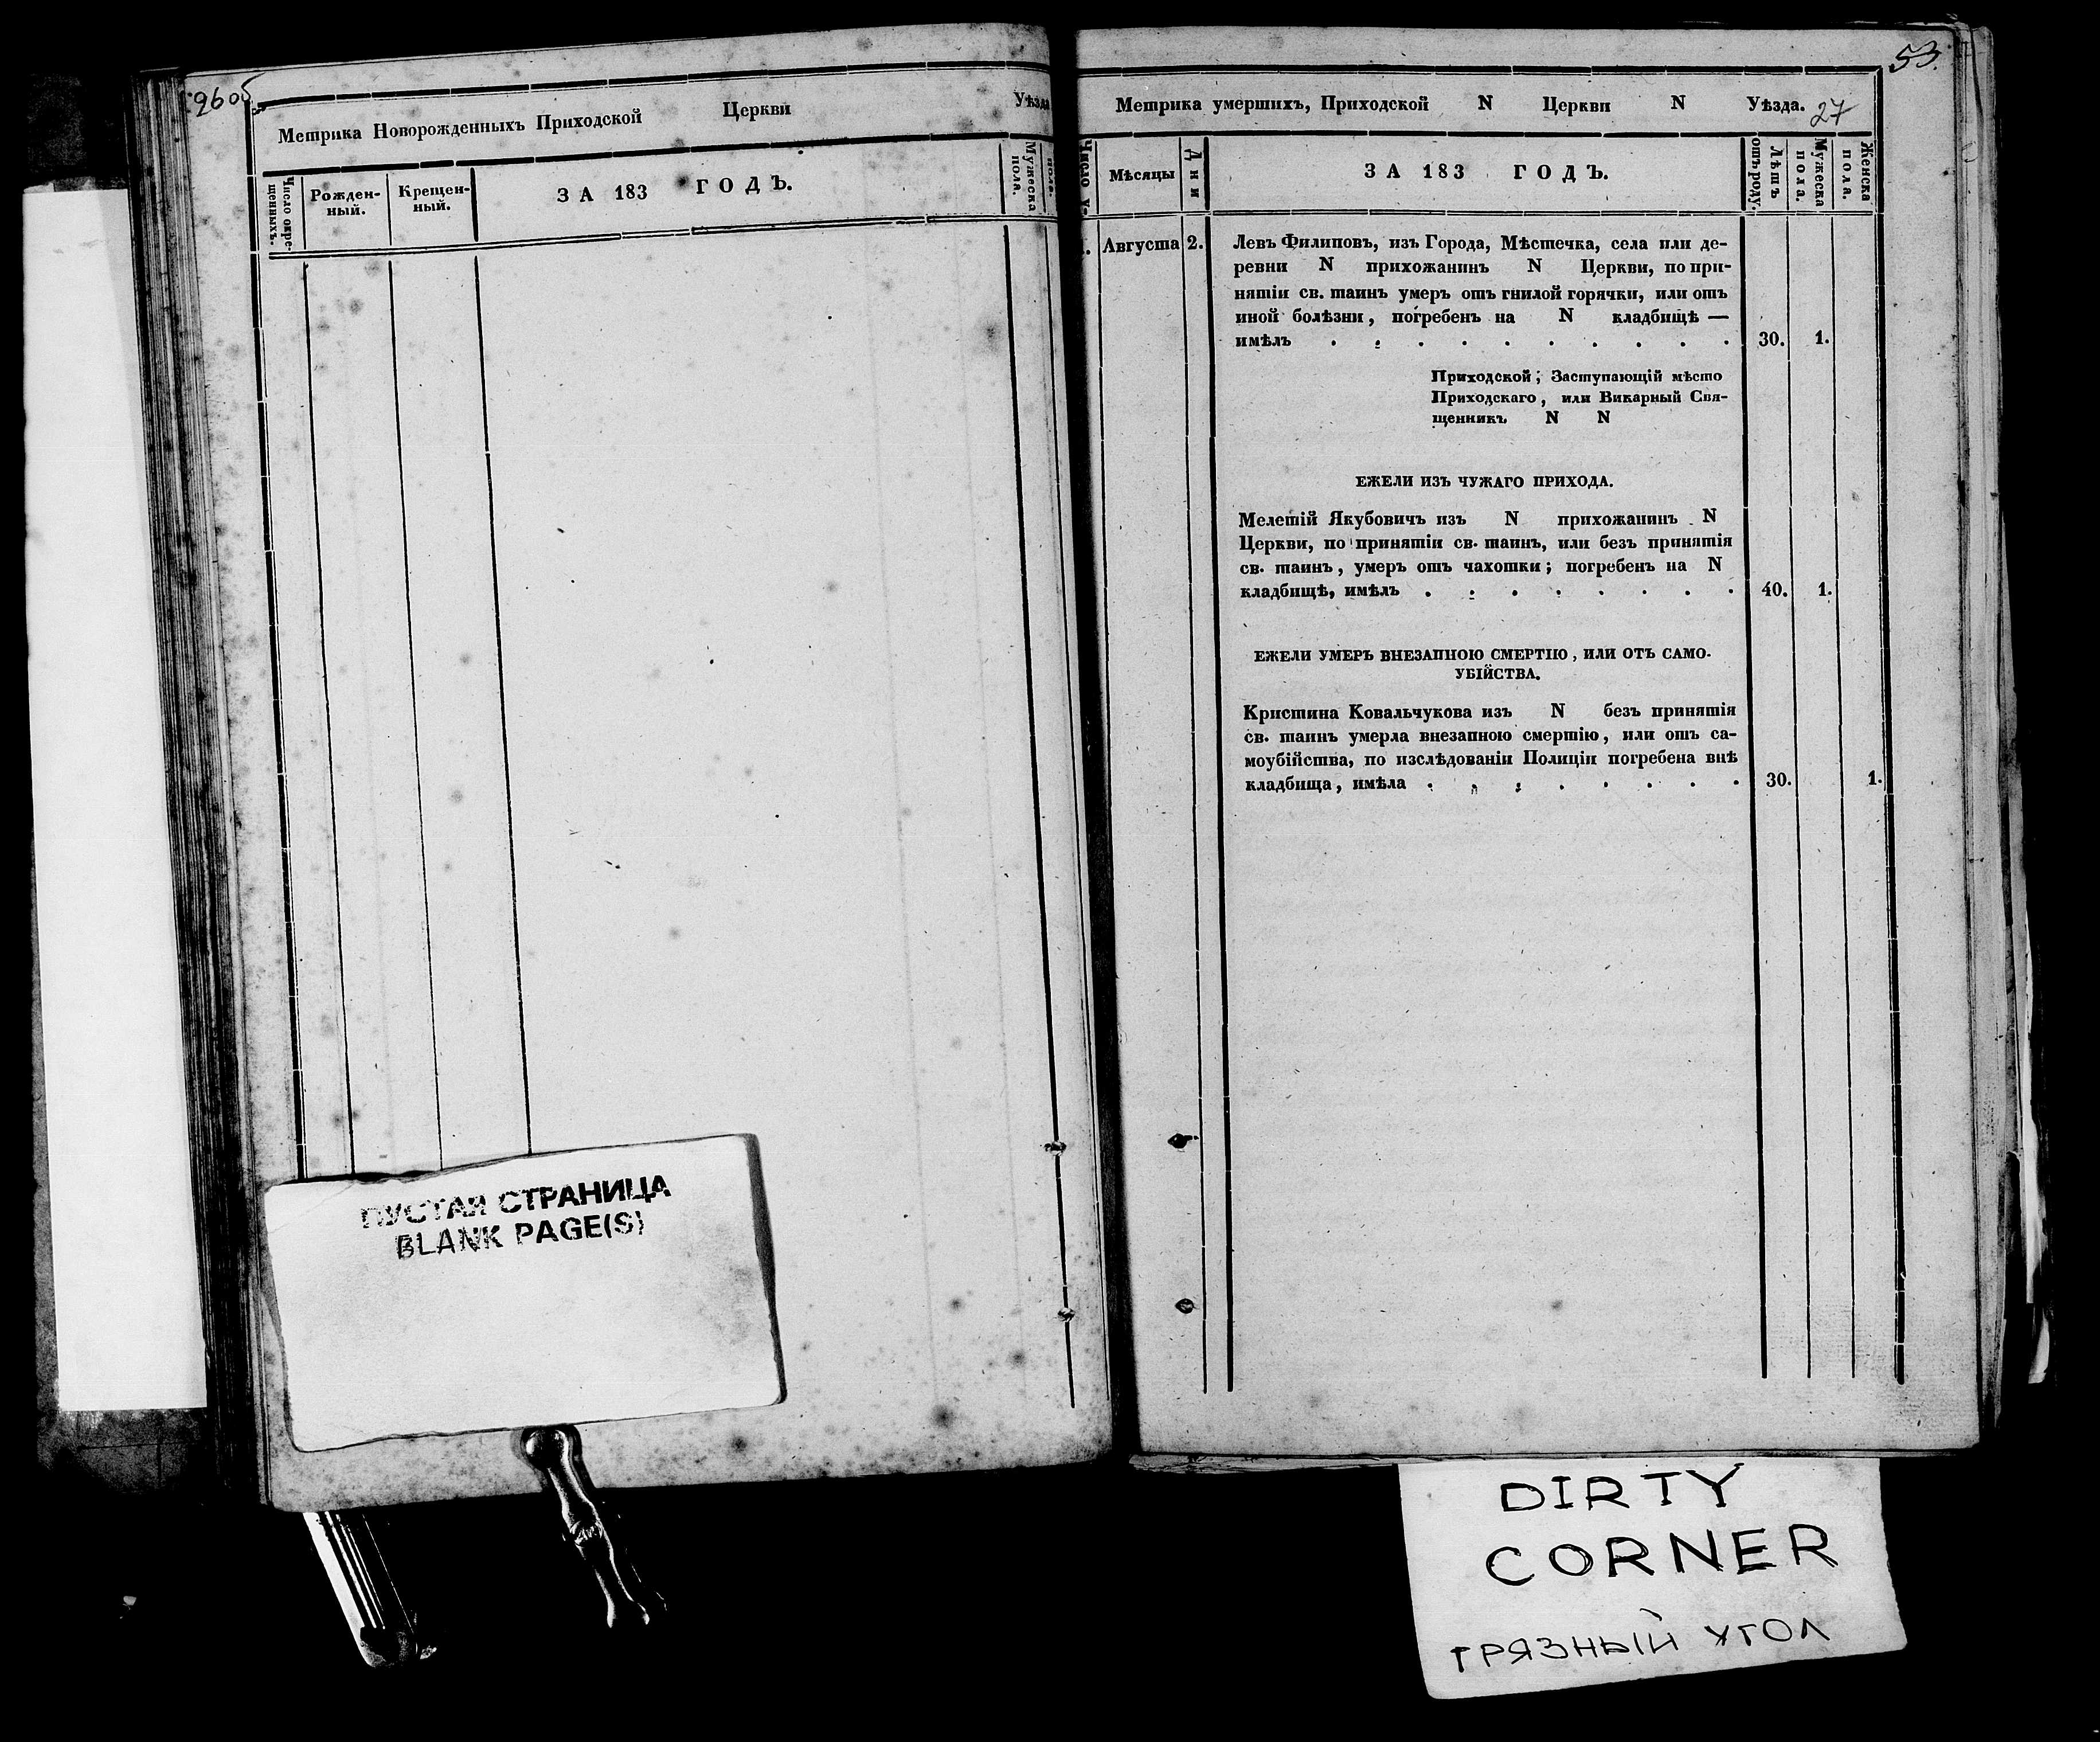 26об
Метрика Новорожденныхъ Приходской Церкви Уѣзда
Число окре-
щенныхъ.
Рожден-
ный.
Крещен-
ный.
ЗА 183 ГОДЪ.
Мужеска
пола.
ПУСТАЯ СТРАНИЦА
BLANK PAGE(S)
53.
Метрика умершихъ, Приходской N Церкви N Уѣзда.
27
Число у-
Мѣсяцы
Дни
ЗА 183 ГОДЪ.
Лѣтъ
отъ роду.
Мужеска
пола.
Женска
пола.
Августа 2. Левъ Филиповъ, изъ Города, Мѣстечка, села или де-
ревни N прихожанинъ N Церкви, по при-
нятіи св. таинъ умеръ отъ гнилой горячки, или отъ
иной болѣзни, погребенъ на N кладбищѣ —
имѣлъ . . . . . . . . . . 30. 1.
Приходской; Заступающій мѣсто
Приходскаго, или Викарный Свя-
щенникъ N N
ЕЖЕЛИ ИЗЪ ЧУЖАГО ПРИХОДА.
Мелетій Якубовичъ изъ N прихожанинъ N
Церкви, по принятіи св. таинъ, или безъ принятія
св. таинъ, умеръ отъ чахотки; погребенъ на N
кладбищѣ, имѣлъ . . . . . . . . 40. 1.
ЕЖЕЛИ УМЕРЪ ВНЕЗАПНОЮ СМЕРТІЮ, ИЛИ ОТЪ САМО-
УБІЙСТВА.
Кристина Ковальчукова изъ N безъ принятія
св. таинъ умерла внезапною смертію, или отъ са-
моубійства, по изслѣдованіи Полиціи погребена внѣ
кладбища, имѣла . . . . . . . . 30. 1.
DIRTY
CORNER
ГРЯЗНЫЙ УГОЛ